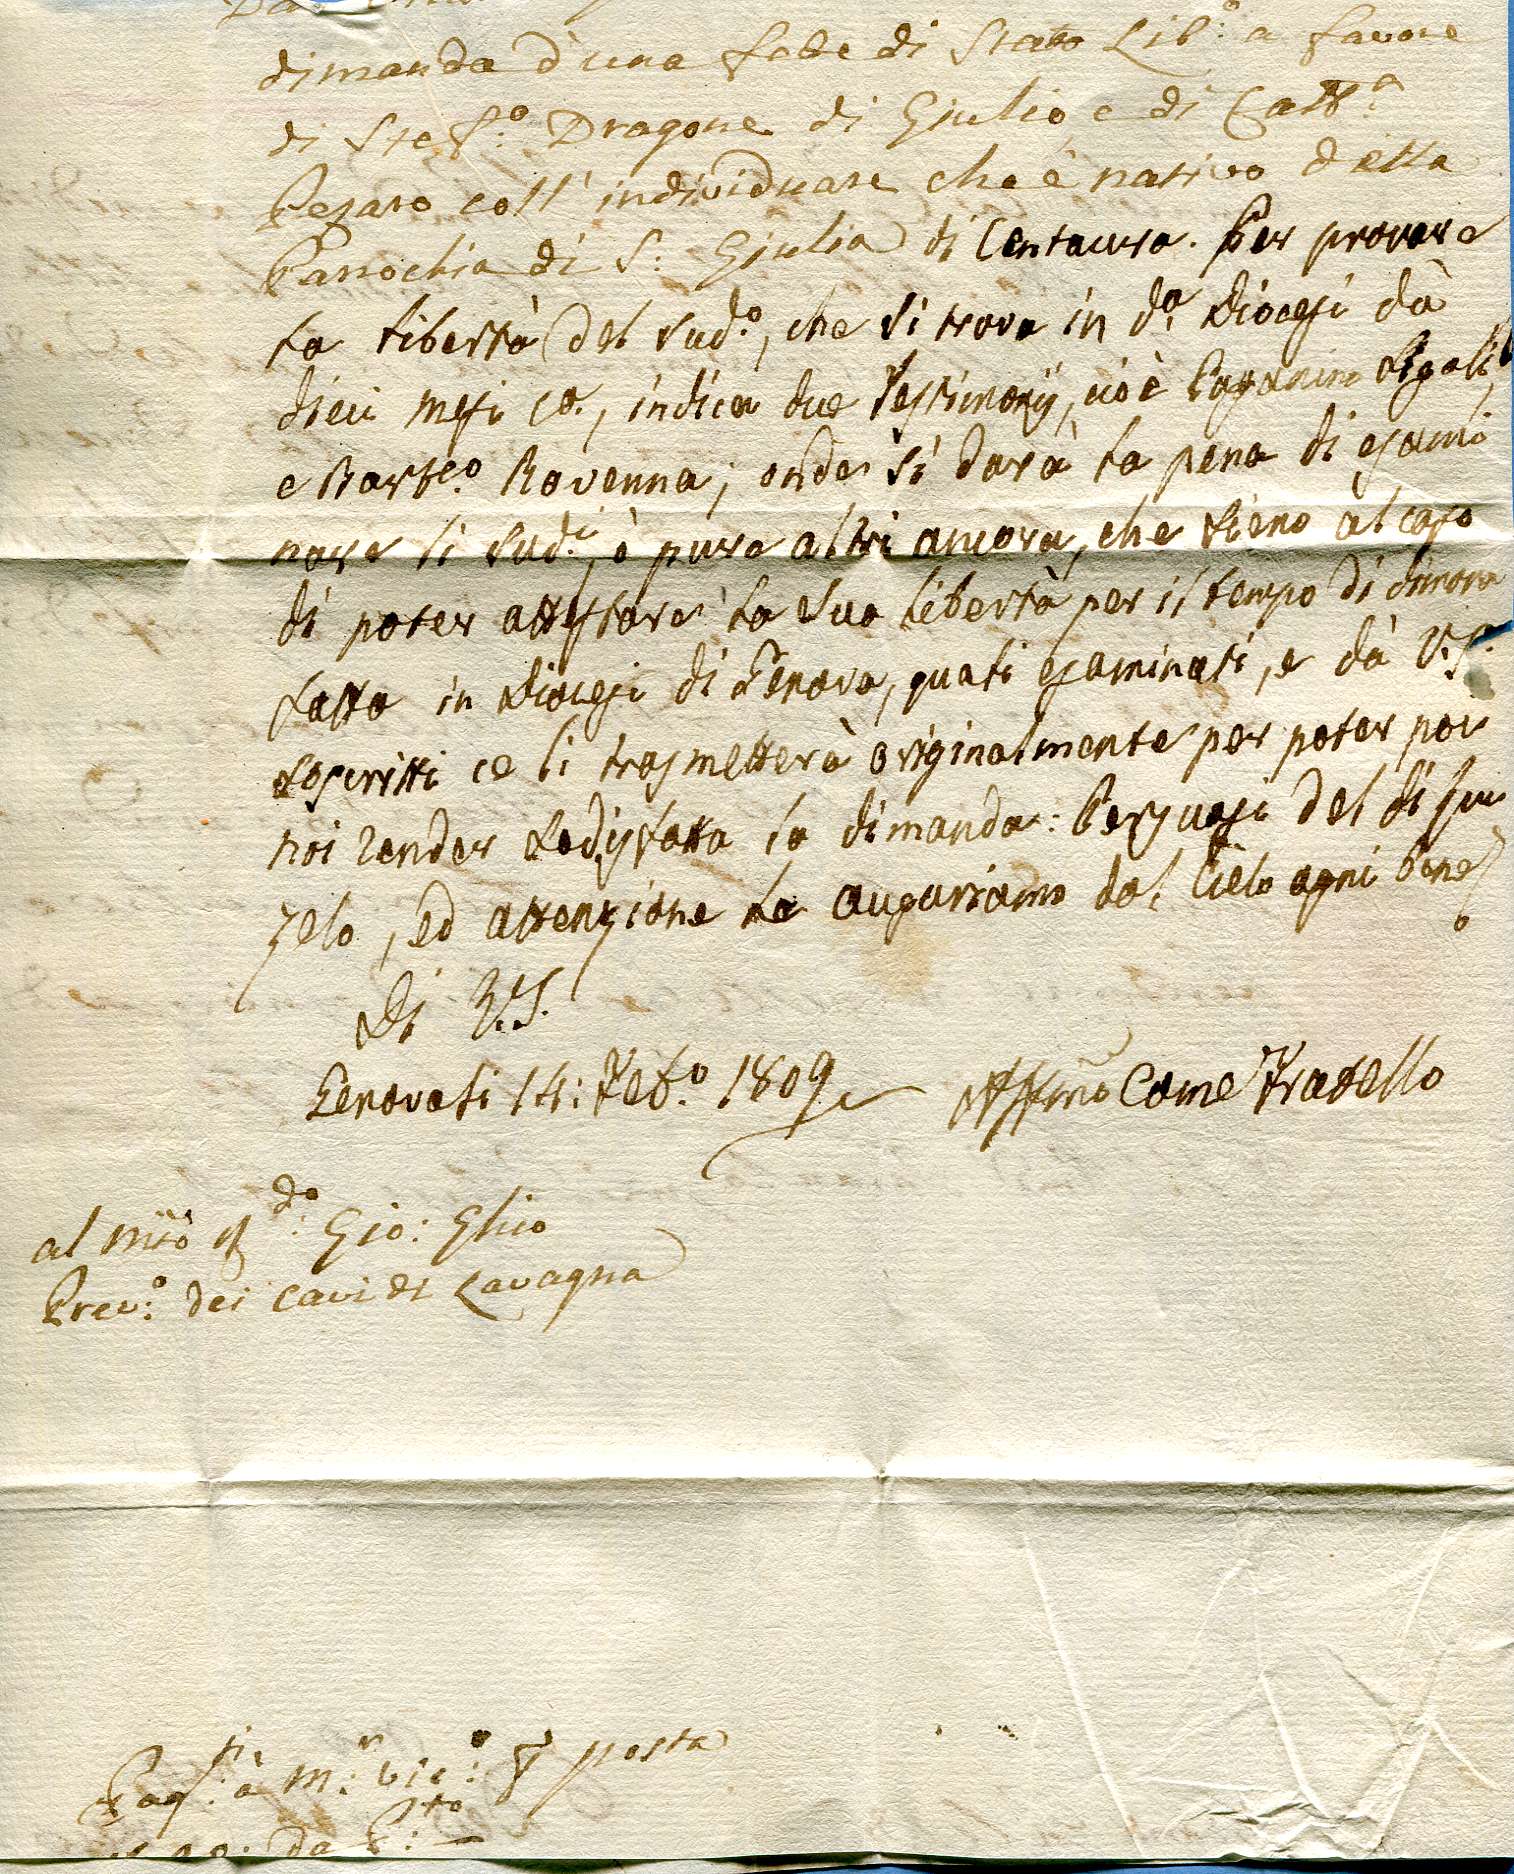 dimanda d'una fede di Stato Lib:o a favore
di Stef:o Dragone di Giulio, e di Catt:a
Pezaro coll' individuare che è nativo della
Parrochia di S: Giulia di Centaura. Per provare
la libertà del sud.o, che si trova in d.a Diocesi dà
dieci mesi ca., indica due Testimonij, cioè Paganino
e Bart.o Ravenna; onde si darà la pena di esami
nare li sud.i, ò pure altri ancora, che sieno al caso
di poter attestare la sua libertà per il tempo di dimora
fatta in Diocesi di Genova, quali esaminati, e dà V.S.
soscritti ce li trasmetterà originalmente per poter poi
noi render sodisfatta la dimanda: Persuasi del di lui
zelo, ed attenzione Le auguriamo dal Cielo ogni bene
Di V.S.
Genova li 14: Feb.o 1809 Aff.mo Come Fratello
al M.to R.do Gio:
Prev:o dei Cavi di Lavagna
posta
da